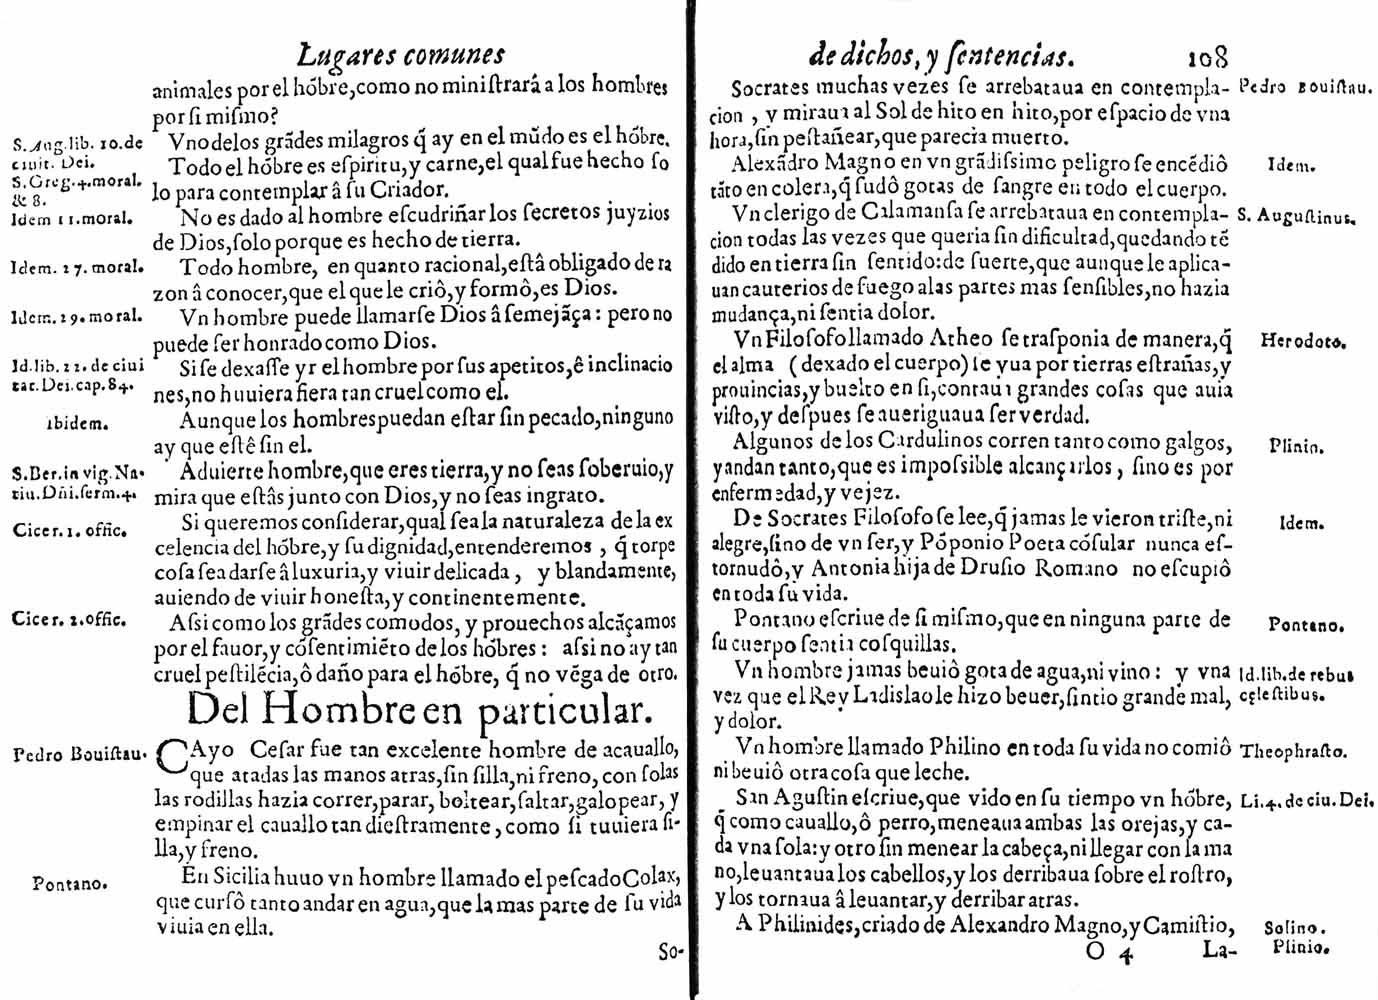 Lugares comunes
animales por el hõbre, como no miniſtrará a los hombres
por ſi miſmo?
S. Aug. lib. 10. de
ciuit. Dei.
Vno delos grãdes milagros q̃ ay en el mũdo es el hõbre.
Todo el hõbre es eſpiritu, y carne, el qual fue hecho ſo
S. Greg. 4. moral.
& 8.
lo para contemplar â ſu Criador.
Idem 11. moral.
No es dado al hombre eſcudriñar los ſecretos juyzios
de Dios, ſolo porque es hecho de tierra.
Idem. 27. moral.
Todo hombre, en quanto racional, eſtâ obligado de ra
zon â conocer, que el que le criô, y formô, es Dios.
Idem. 29. moral.
Vn hombre puede llamarſe Dios â ſemejãça: pero no
puede ſer honrado como Dios.
Id. lib. 22. de ciui
tat. Dei. cap. 84.
Si ſe dexaſſe yr el hombre por ſus apetitos, ê inclinacio
nes, no huuiera fiera tan cruel como el.
ibidem.
Aunque los hombres puedan eſtar ſin pecado, ninguno
ay que eſtê ſin el.
S. Ber. in vig. Na-
tiu. Dñi. ſerm. 4.
Aduierte hombre, que eres tierra, y no ſeas ſoberuio, y
mira que eſtâs junto con Dios, y no ſeas ingrato.
Cicer. 1. offic.
Si queremos conſiderar, qual ſea la naturaleza de la ex
celencia del hõbre, y ſu dignidad, entenderemos, q̃ torpe
coſa ſea darſe â luxuria, y viuir delicada, y blandamente,
auiendo de viuir honeſta, y continentemente.
Cicer. 2. offic.
Aſsi como los grãdes comodos, y prouechos alcãçamos
por el fauor, y cõſentimiẽto de los hõbres: aſsi no ay tan
cruel peſtilẽcia, ô daño para el hõbre, q̃ no vẽga de otro.
Del Hombre en particular.
Pedro Bouiſtau.
CAyo Ceſar fue tan excelente hombre de acauallo,
que atadas las manos atras, ſin ſilla, ni freno, con ſolas
las rodillas hazia correr, parar, boltear, ſaltar, galopear, y
empinar el cauallo tan dieſtramente, como ſi tuuiera ſi-
lla, y freno.
Pontano.
En Sicilia huuo vn hombre llamado el peſcado Colax,
que curſô tanto andar en agua, que la mas parte de ſu vida
viuia en ella.
So-
de dichos, y ſentencias. 108
Socrates muchas vezes ſe arrebataua en contempla-
Pedro Bouiſtau.
cion, y miraua al Sol de hito en hito, por eſpacio de vna
hora, ſin peſtañear, que parecia muerto.
Alexãdro Magno en vn grãdiſsimo peligro ſe encẽdiô
Idem.
tãto en colera, q̃ ſudô gotas de ſangre en todo el cuerpo.
Vn clerigo de Calamanſa ſe arrebataua en contempla-
S. Auguſtinus.
cion todas las vezes que queria ſin dificultad, quedando tẽ
dido en tierra ſin ſentido: de ſuerte, que aunque le aplica-
uan cauterios de fuego a las partes mas ſenſibles, no hazia
mudança, ni ſentia dolor.
Vn Filoſofo llamado Atheo ſe traſponia de manera, q̃
Herodoto.
el alma (dexado el cuerpo) ſe yua por tierras eſtrañas, y
prouincias, y buelto en ſi, contaua grandes coſas que auia
viſto, y deſpues ſe aueriguaua ſer verdad.
Algunos de los Cardulinos corren tanto como galgos,
Plinio.
y andan tanto, que es impoſsible alcançarlos, ſino es por
enfermedad, y vejez.
De Socrates Filoſofo ſe lee, q̃ jamas le vieron triſte, ni
Idem.
alegre, ſino de vn ſer, y Põponio Poeta cõſular nunca eſ-
tornudô, y Antonia hija de Druſio Romano no eſcupiô
en toda ſu vida.
Pontano eſcriue de ſi miſmo, que en ninguna parte de
Pontano.
ſu cuerpo ſentia coſquillas.
Vn hombre jamas beuiô gota de agua, ni vino: y vna
Id. lib. de rebus
vez que el Rey Ladislao le hizo beuer, ſintio grande mal,
cęleſtibus.
y dolor.
Vn hombre llamado Philino en toda ſu vida no comiô
Theophraſto.
ni beuiô otra coſa que leche.
San Aguſtin eſcriue, que vido en ſu tiempo vn hõbre,
Li. 4. de ciu. Dei.
q̃ como cauallo, ô perro, meneaua ambas las orejas, y ca-
da vna ſola: y otro ſin menear la cabeça, ni llegar con la ma
no, leuantaua los cabellos, y los derribaua ſobre el roſtro,
y los tornaua â leuantar, y derribar atras.
A Philinides, criado de Alexandro Magno, y Camiſtio,
Solino.
Plinio.
O 4 La-